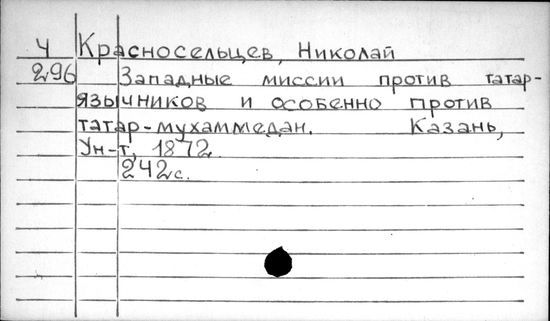 Ч Красносельцев, Николай
296 Западные миссии против татар-
язычников и особенно против
татар-мухаммедан. Казань,
Ун-т, 1872.
242 с.